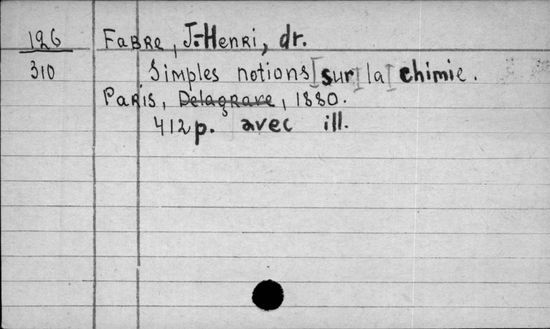 126 Fabre, J.-Henri, dr.
310 Simples notions [sur] la] chimie.
Paris, Delagrave, 1880.
412 p. avec ill.